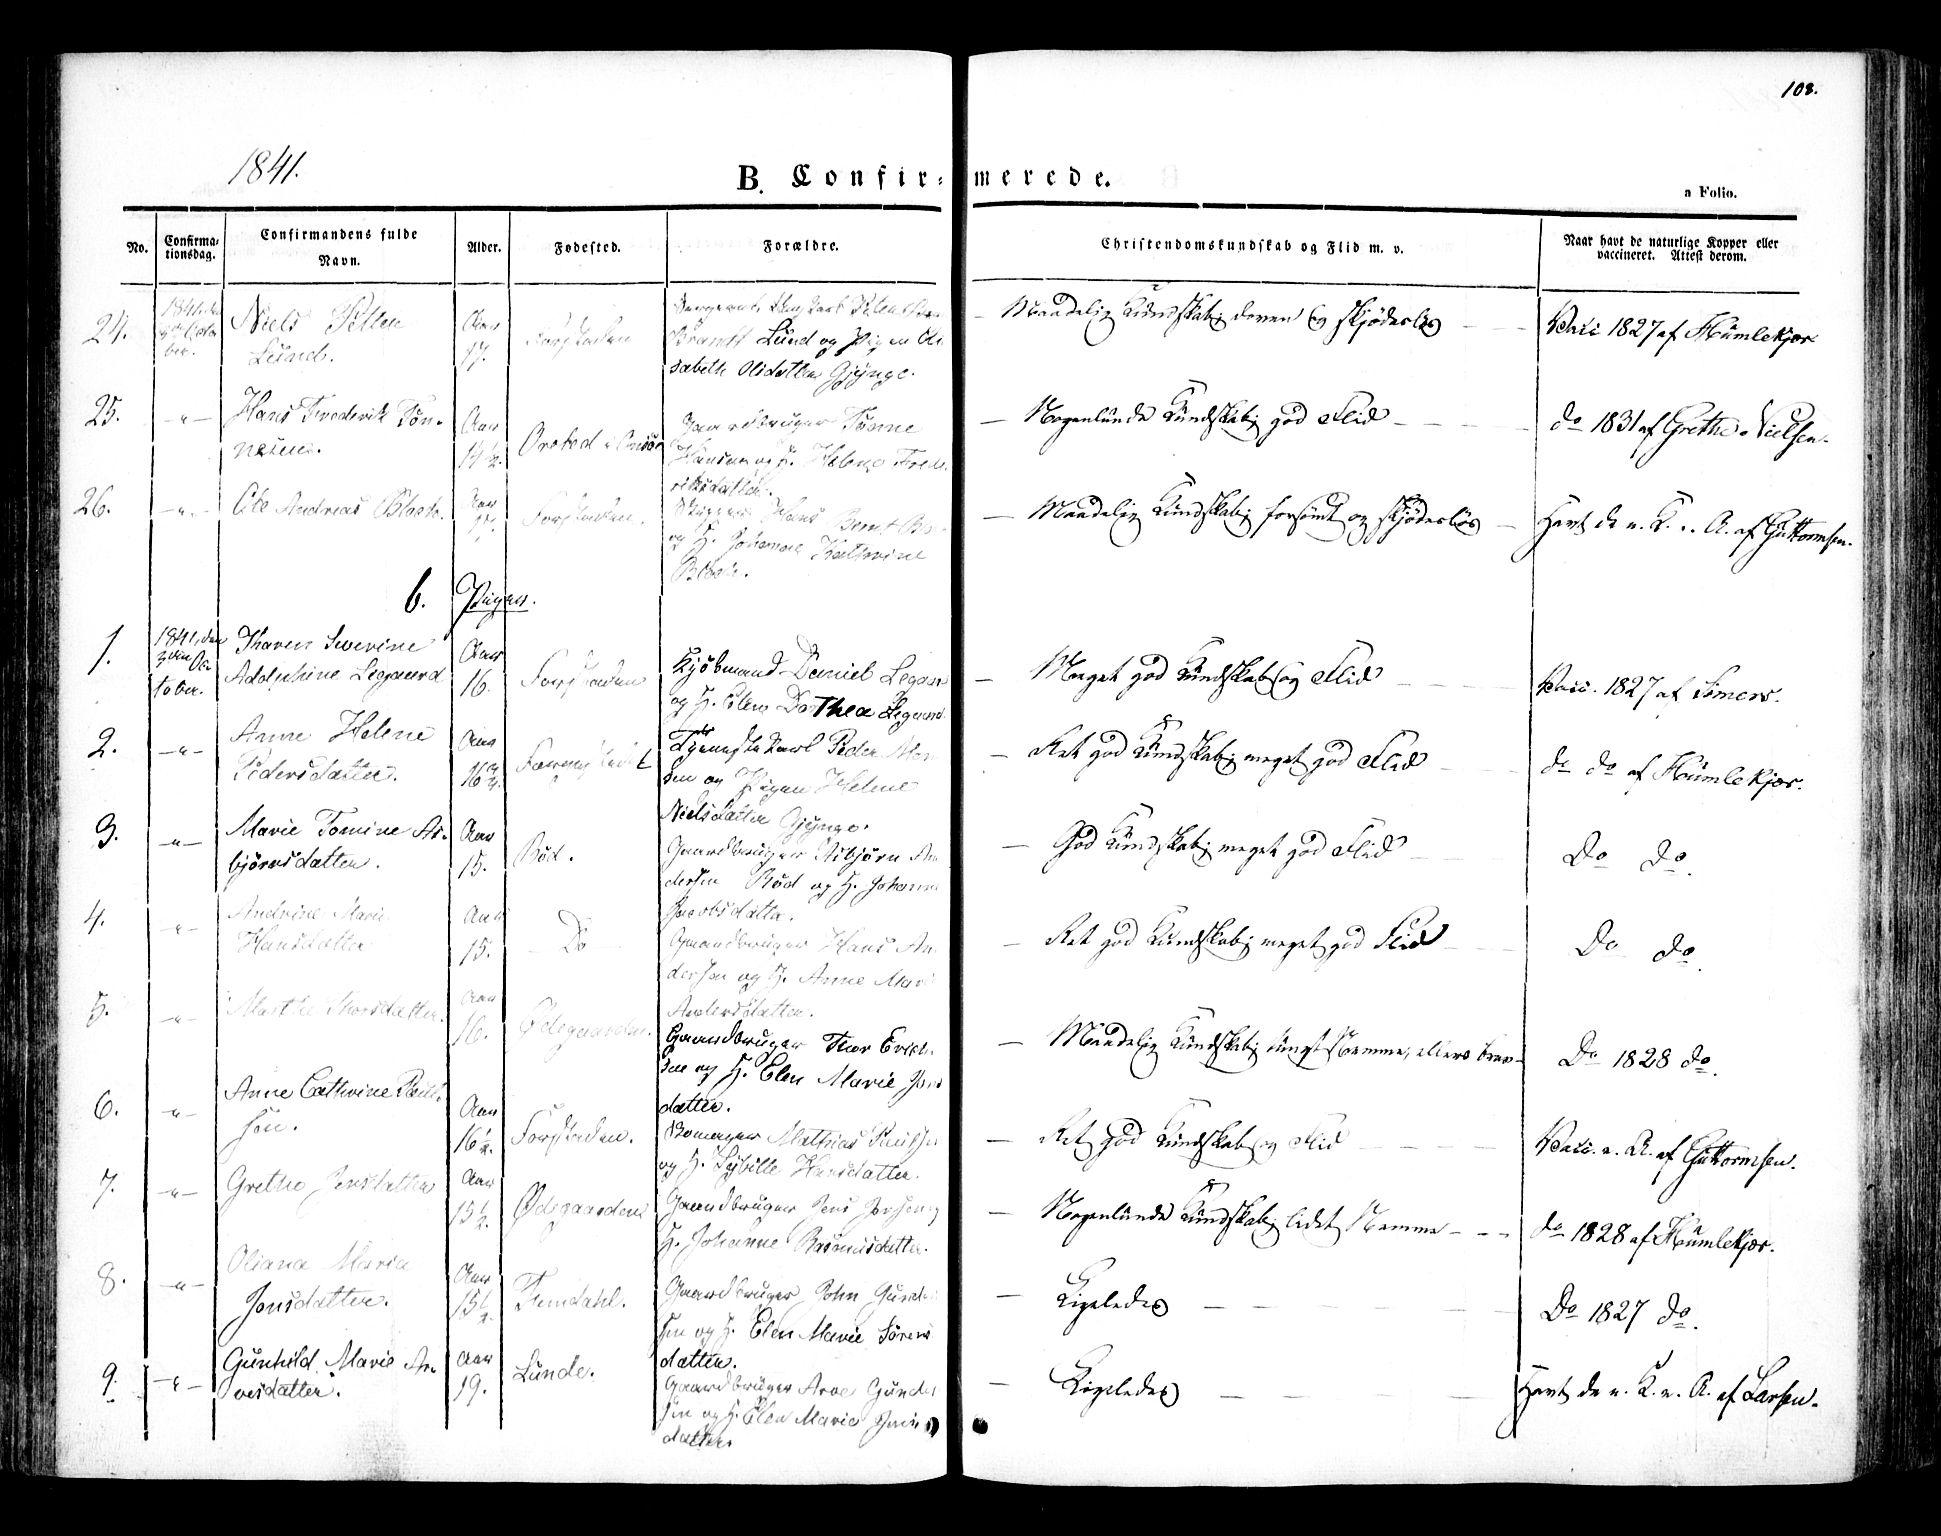 108.
1841.
B. Confirmerede.
a Folio.
No.
Confirmationsdag.
Confirmandens fulde Navn.
Alder.
Fødested.
Forældre.
Christendomskundskab og Flid m. v.
Naar havt de naturlige Kopper eller vaccineret. Attest derom.
24.
1841, den
Niels
Lund.
Aar
17.
Forstaden
Lund og Pigen Eli
sabeth Olsdatter Gjønge.
Maadelig Kundskab; doven og skjødesløs
Vacc 1827 af Humlekjær
25.
-"-
Hans Frederik Tøn-
nesen.
Aar
14½.
Onsø
Gaardbruger Tønne
Hansen og H. Helene Frede
riksdatter.
Nogenlunde Kundskab; god Flid
do 1831 af Grethe Nielsen.
26.
-"-
Ole Andreas Bloch.
Aar
17.
Forstaden.
Hans Bernt
og H. Johanne Kathrine
Bloch.
Maadelig Kundskab; forsømt og skjødesløs
Havt de n. K. A. af Guttormsen.
b. Piger.
1.
1841, den
3die Oc
tober.
Tharen Severine
Adolphine Legaard
Aar
16.
Forstaden
Kjøbmand Daniel Legaar
og H. Elen Dorthea Legaard.
Meget god Kundskab og Flid
Vacc. 1827 af Simers.
2.
-"-
Anne Helene
Pedersdatter.
Aar
16¾.
Tjenestekarl Peder
sen og Pigen Helene
Nielsdatter Gjønge.
Ret god Kundskab; meget god Flid
do do af Humlekjær.
3.
-"-
Marie Tomine As-
bjørnsdatter.
Aar
15.
Rød.
Gaardbruger Asbjørn An
dersen Rød og H. Johanne
Jacobsdatter.
God Kundskab; meget god Flid
Do do.
4.
-"-
Andrine Marie
Hansdatter
Aar
15.
Do
Gaardbruger Hans An
dersen og H. Anne Marie
Andersdatter.
Ret god Kundskab; meget god Flid
Do do.
5.
-"-
Marthe Thorsdatter.
Aar
16.
Ødegaarden.
Gaardbruger Thor Erich
sen og H. Elen Marie Jens
datter.
Maadelig Kundskab; tungt Nemme, ellers brav
Do 1828 do.
6.
-"-
Anne Cathrine Paul-
sen.
Aar
16½.
Forstaden.
Mathias Paulsen
og H. Sybille Hansdatter.
Ret god Kundskab og Flid
Vacc. n. A. af Guttormsen.
7.
-"-
Grethe Jensdatter
Aar
15½.
Ødegaarden
Gaardbruger Jens Jensen og
H. Johanne Rasmusdatter.
Nogenlunde Kundskab; lidet Nemme
do 1828 af Humlekjær.
8.
-"-
Oliana Maria
Jonsdatter.
Aar
15½.
Femdahl.
Gaardbruger John Gunder
sen og H. Elen Marie Sørens
datter.
Ligeledes
Do 1827 do.
9.
-"-
Gunhild Marie Ar-
vesdatter.
Aar
19.
Lunde.
Gaardbruger Arve Gunder
sen og H. Elen Marie
datter
Ligeledes
Havt de n. K. n. A. af Larsen.